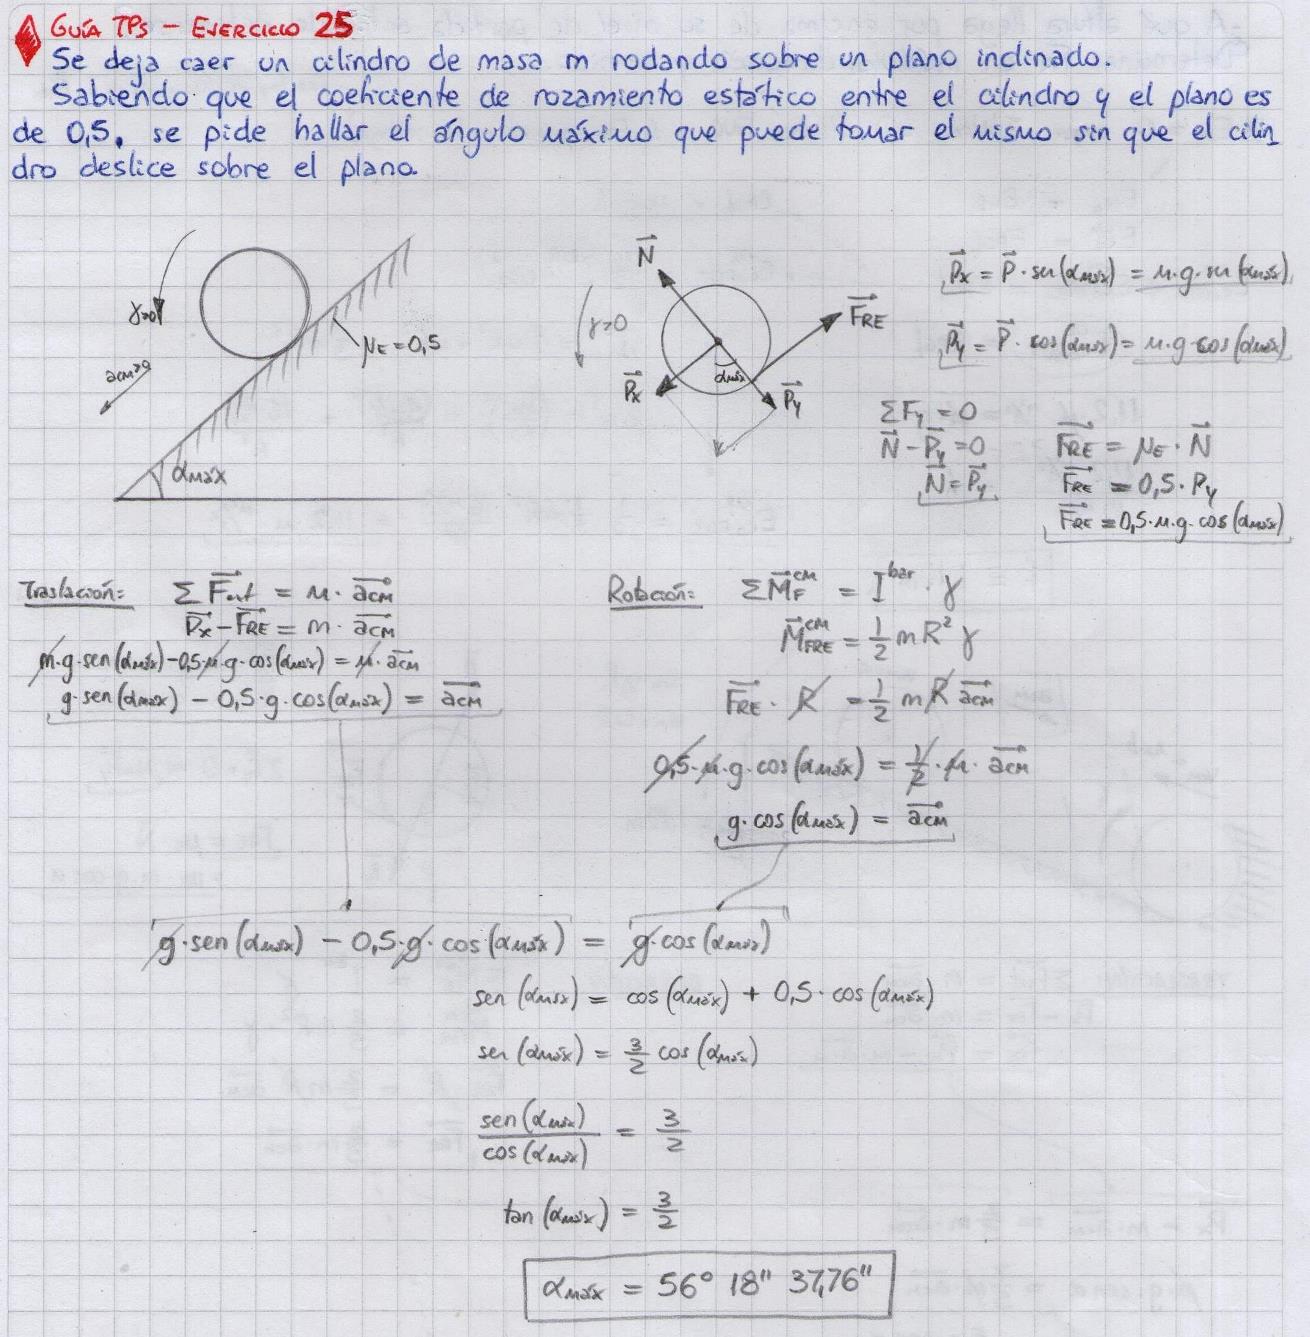 GUÍA TPs - EJERCICIO 25
Se deja caer un cilindro de masa m rodando sobre un plano inclinado.
Sabiendo que el coeficiente de rozamiento estático entre el cilindro y el plano es
de 0,5, se pide hallar el ángulo máximo que puede tomar el mismo sin que el cilin
dro deslice sobre el plano.
γ>0
acm>0
μE = 0,5
αmáx
N
γ>0
FRE
Px
αmáx
Py
Px = P · sen(αmáx) = m·g·sen(αmáx)
Py = P · cos(αmáx) = m·g·cos(αmáx)
ΣFy = 0
N - Py = 0
N = Py
FRE = μE · N
FRE = 0,5 · Py
FRE = 0,5·m·g·cos(αmáx)
Traslación: ΣFext = m · acm
Px - FRE = m · acm
m·g·sen(αmáx) - 0,5·m·g·cos(αmáx) = m · acm
g·sen(αmáx) - 0,5·g·cos(αmáx) = acm
Rotación: ΣMF^cm = I^bar · γ
MFRE^cm = 1/2 m R² γ
FRE · R = 1/2 m R acm
0,5·m·g·cos(αmáx) = 1/2 · m · acm
g·cos(αmáx) = acm
g·sen(αmáx) - 0,5·g·cos(αmáx) = g·cos(αmáx)
sen(αmáx) = cos(αmáx) + 0,5·cos(αmáx)
sen(αmáx) = 3/2 cos(αmáx)
sen(αmáx)/cos(αmáx) = 3/2
tan(αmáx) = 3/2
αmáx = 56° 18" 37,76"